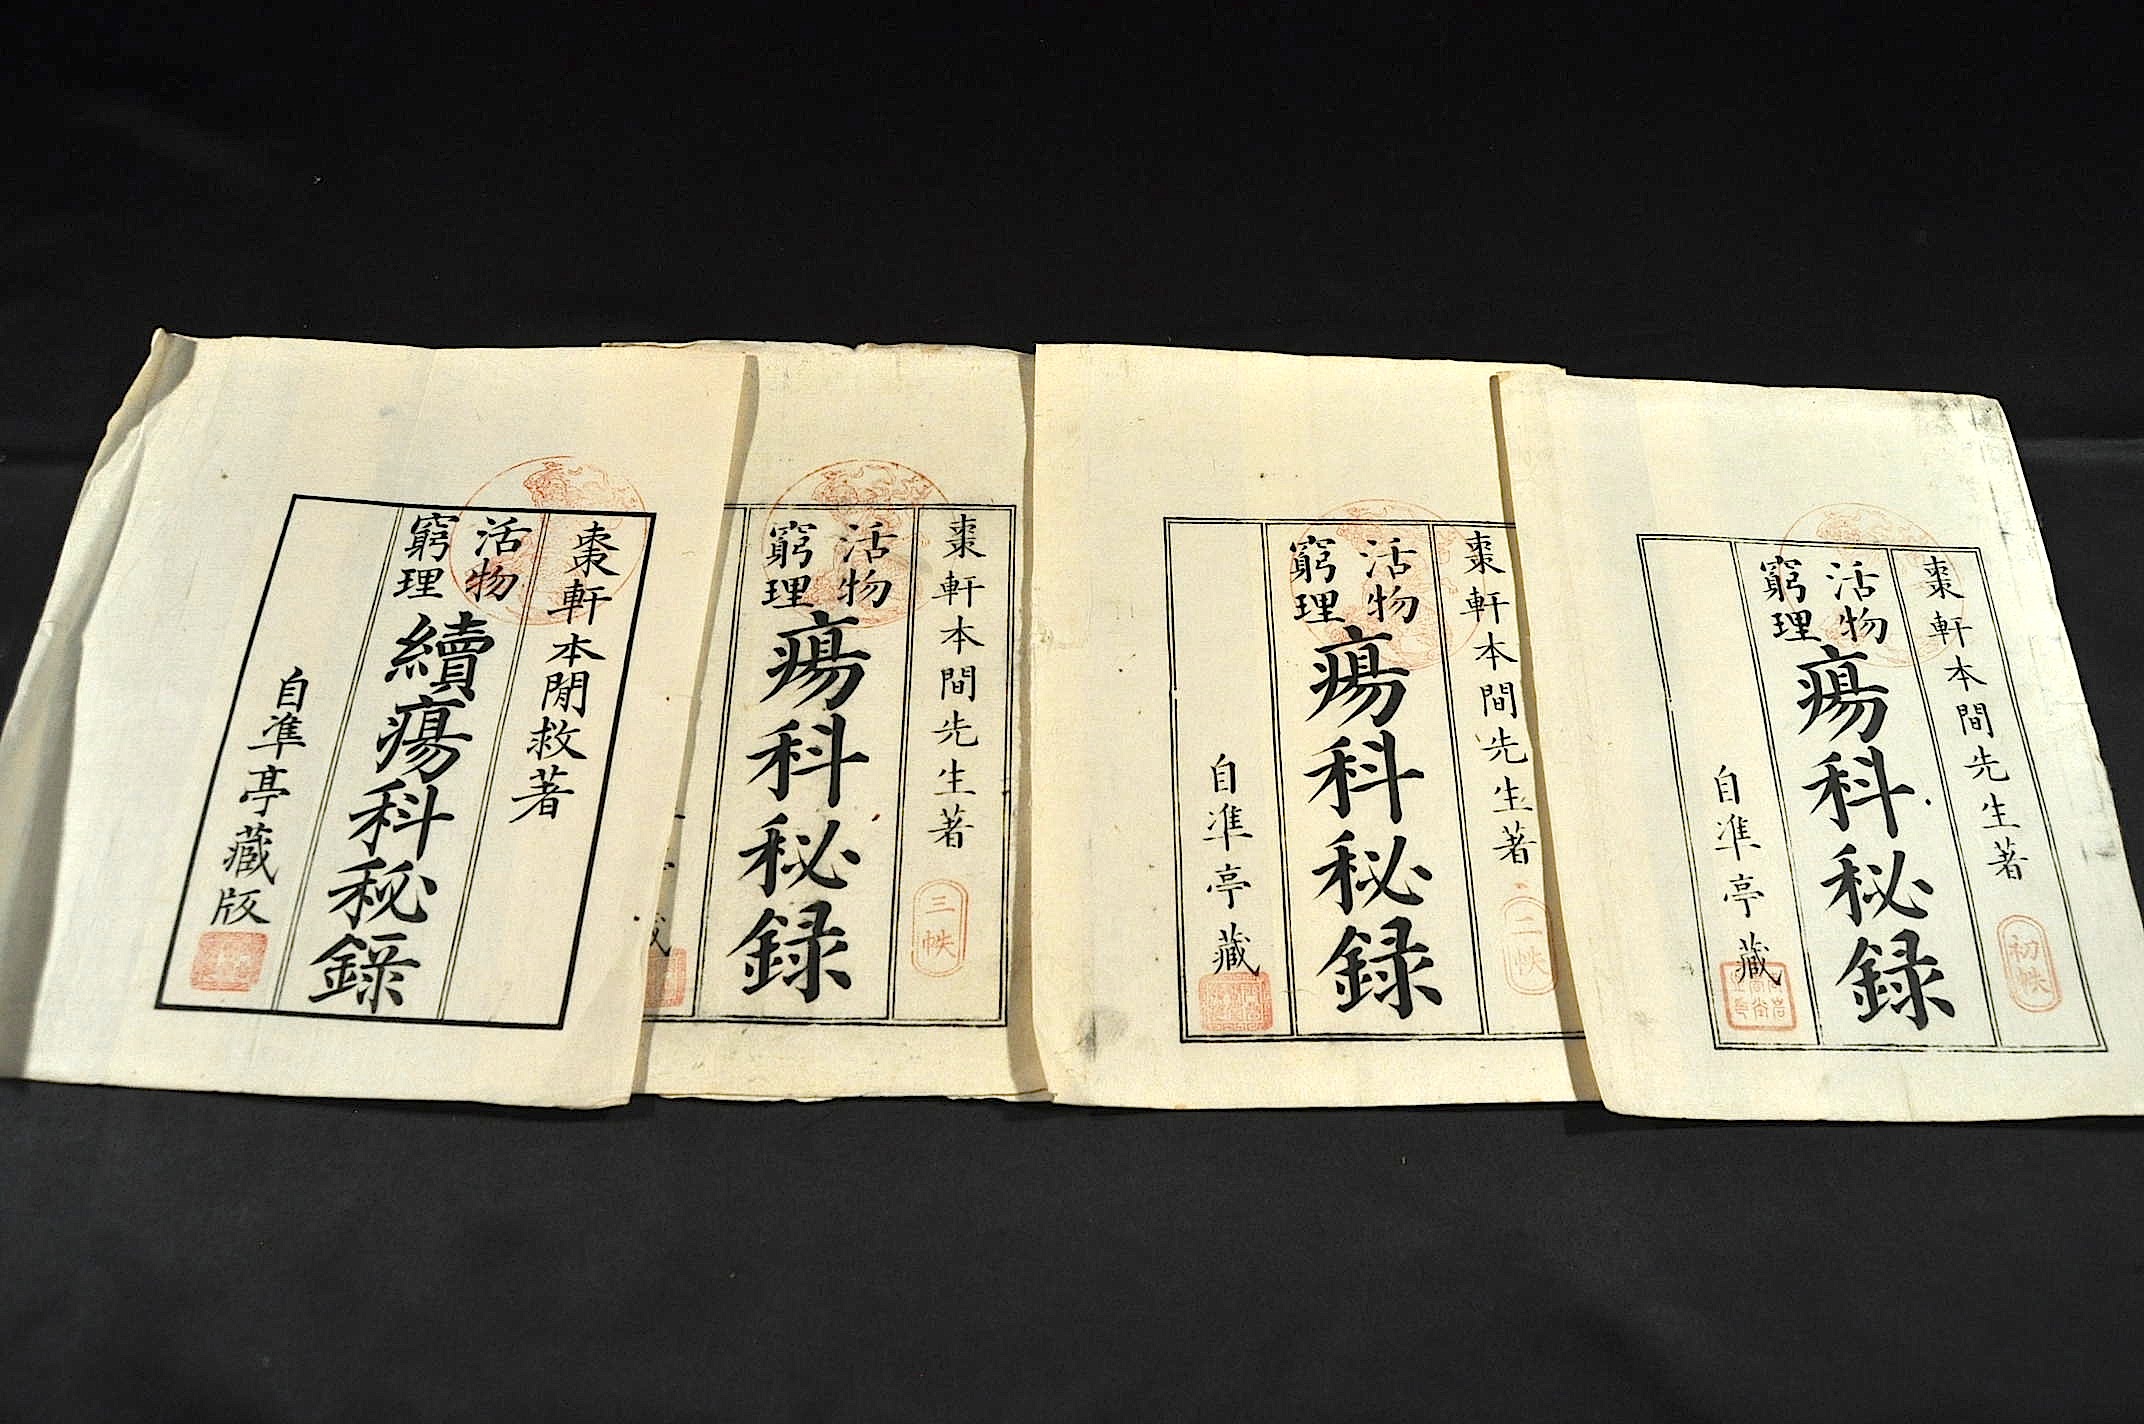 棗軒本間先生著
初帙
活物
窮理
瘍科秘録
自準亭藏
棗軒本間先生著
二帙
活物
窮理
瘍科秘録
自準亭藏
棗軒本間先生著
三帙
活物
窮理
瘍科秘録
棗軒本閒救著
活物
窮理
續瘍科秘錄
自準亭藏版